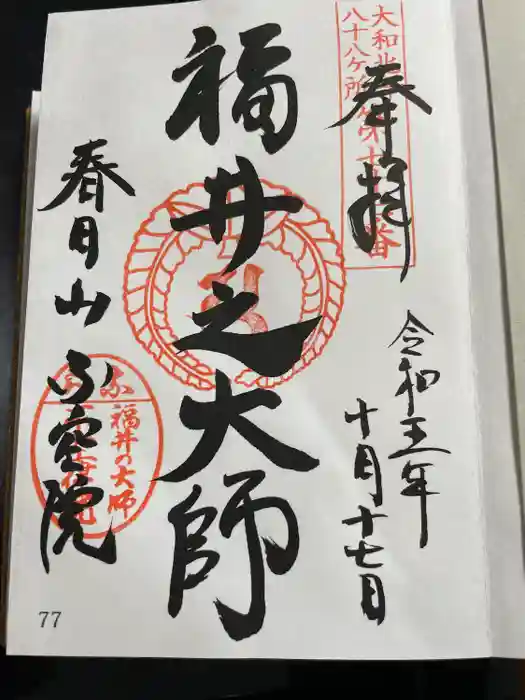 奉拝
大和北
八十八ヶ所第十 番
令和五年
十月十七日
福井之大師
春日山不空院
福井の大師
77